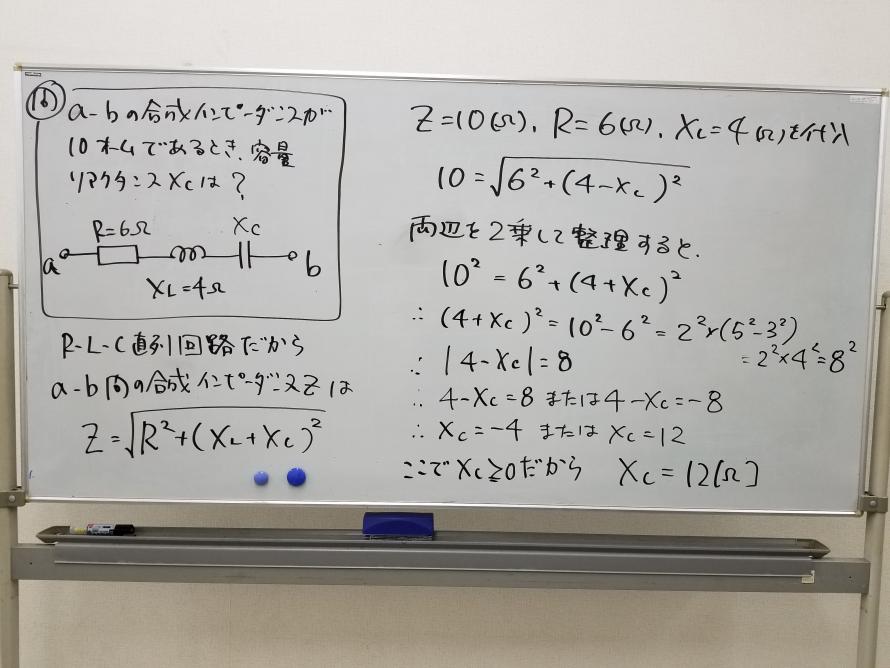 問
a-bの合成インピーダンスが
10オームであるとき、容量
リアクタンスXcは?
R=6Ω
Xc
a
b
XL=4Ω
R-L-C直列回路だから
a-b間の合成インピーダンスZは
Z=√R²+(XL+Xc)²
Z=10(Ω)、R=6(Ω)、XL=4(Ω)を代入
10=√6²+(4-Xc)²
両辺を2乗して整理すると、
10²=6²+(4+Xc)²
∴(4+Xc)²=10²-6²=2²×(5²-3²)
=2²×4²=8²
∴|4-Xc|=8
∴4-Xc=8または4-Xc=-8
∴Xc=-4 または Xc=12
ここでXc≧0だから Xc=12[Ω]